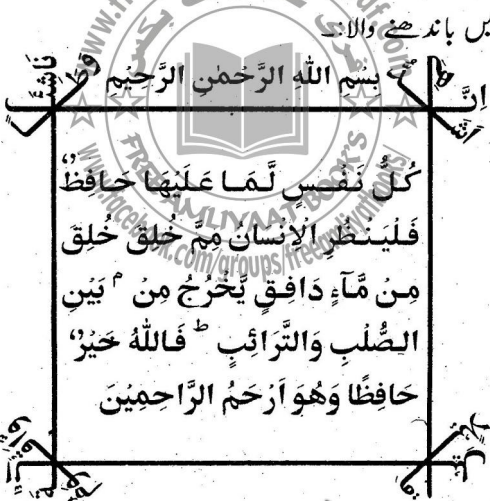 یں باندھنے والا:۔
بِسْمِ اللهِ الرَّحْمٰنِ الرَّحِيْمِ
اِنَّ
كُلُّ نَفْسٍ لَّمَا عَلَيْهَا حَافِظٌ
فَلْيَنْظُرِ الْاِنْسَانُ مِمَّ خُلِقَ خُلِقَ
مِنْ مَّآءٍ دَافِقٍ يَّخْرُجُ مِنْ م بَيْنِ
الصُّلْبِ وَالتَّرَائِبِ ط فَاللهُ خَيْرٌ
حَافِظًا وَهُوَ اَرْحَمُ الرَّاحِمِيْنَ
FREE AMLIYAAT BOOKS